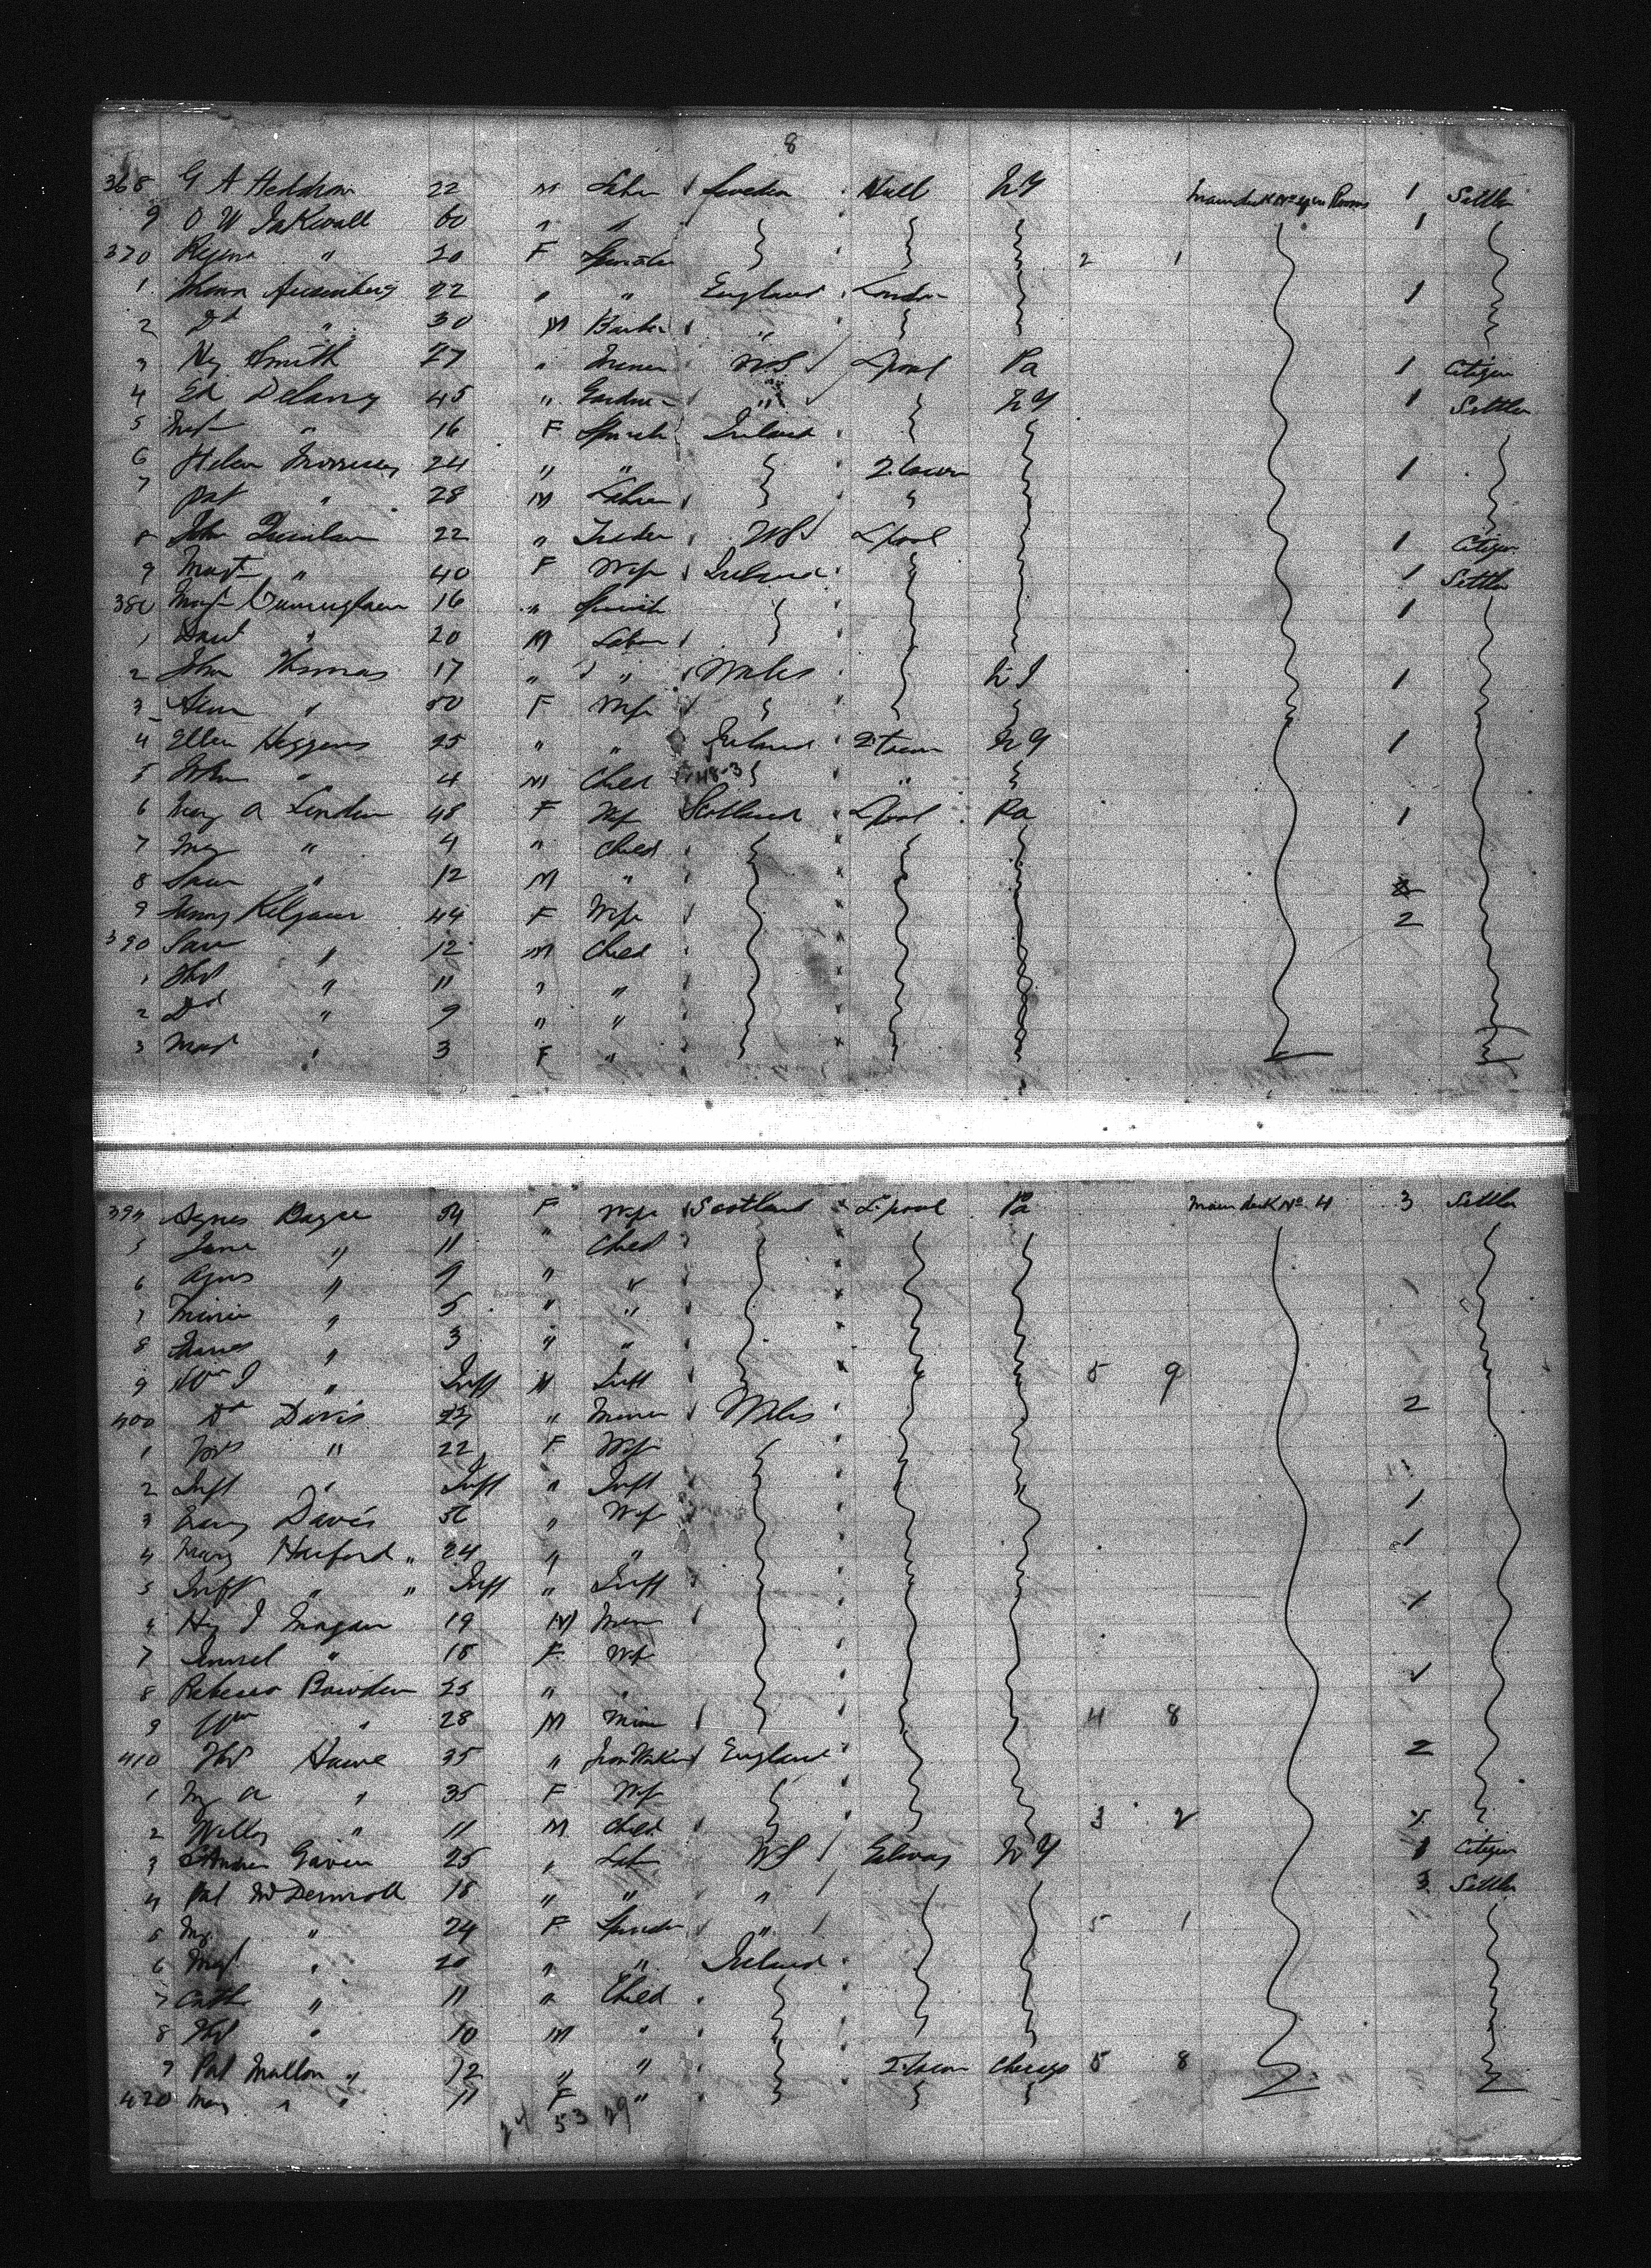 8
368 G A Hedstrom 22 M Labr Sweden Hull NY Main deck No 4 in Rooms 1 Settler
9 O W 60 " " 1
370 Regina " 20 F Spinster 2 1
1 22 " " England London 1
2 Dd " 30 M Barber "
3 Hy Smith 27 " Miner US L'pool Pa 1 Citizen
4 Ed Delany 45 " Gardner " NY 1 Settler
5 Margt " 16 F Spinster Ireland
6 Helen Morrissey 24 " " Q.town 1
7 Pat " 28 M Labrer
8 John Quinlan 22 " US L'pool 1 Citizen
9 Margt " 40 F Wife Ireland 1 Settler
380 Margt Cunningham 16 " Spinster 1
1 " 20 M Labor
2 John Thomas 17 " " Wales 1
3 Ann " 50 F Wife
4 Ellen Higgins 25 " " Ireland Q.town NY 1
5 John " 4 M Child "
6 Mary A Linden 48 F Wife Scotland L'pool Pa 1
7 My " 4 " Child
8 Sam " 12 M "
9 Kilgour 44 F Wife 2
390 Sam " 12 M Child
1 Thos " 11 " "
2 Dd " 9 " "
3 " 3 F "
394 Agnes 34 F Wife Scotland L'pool Pa Main deck No. 4 3 Settler
5 Jane " 11 " Child
6 Agnes " 9 " "
7 Minnie " 5 " "
8 " 3 " "
9 Wm J " Infft M Infft 5 9
400 Dd Davis 23 " Miner Wales 2
1 Mrs " 22 F Wife
2 Inft " Infft " Infft
3 Davis 56 " Wife 1
4 Mary Harford " 24 " " 1
5 Infft " " Infft " Infft
6 Hy J Morgan 19 M Miner 1
7 " 18 F Wife
8 Rebecca Bowden 25 " " 1
9 Wm " 28 M Miner 4 8
410 Thos Hawe 35 " Iron Worker England 2
1 My A " 35 F Wife
2 Willy " 11 M Child 3 2
3 Andrew Gavin 25 " Labr US Galway NY 1 Citizen
4 Pat McDermott 18 " " " 3 Settler
5 My " 24 F Spinster " 5 1
6 Margt " 20 " " Ireland
7 Cath " 11 " Child
8 Thos " 10 M "
9 Pat Mallon " 12 " " Q.town Chicago 5 8
420 Mary " " 11 F "
24 53 29